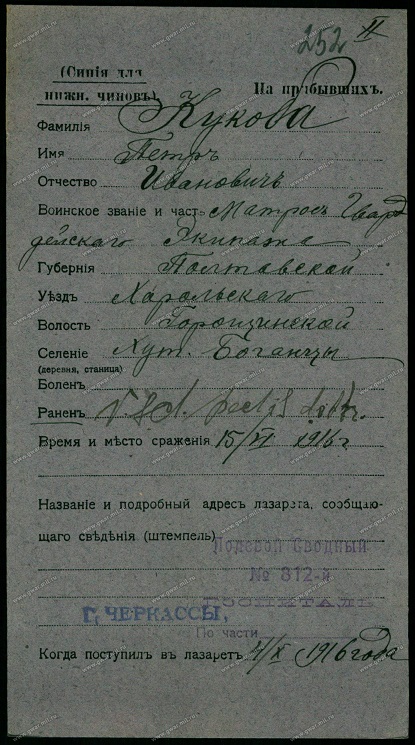 252 II
(Синія для
нижн. чиновъ).
На прибывшихъ.
Фамилія Кукова
Имя Петръ
Отчество Ивановичъ
Воинское званіе и часть Матросъ Гвар
дейскаго Экипажа
Губернія Полтавской
Уѣздъ Хорольскаго
Волость Горошинской
Селеніе Хут. Боганцы
(деревня, станица)
Боленъ
Раненъ V. Scl. pectis
Время и мѣсто сраженія 15/VI 1916 г
Названіе и подробный адресъ лазарета, сообщаю-
щаго свѣдѣнія (штемпель) Полевой Сводный
№ 312-й
ГОСПИТАЛЬ
Г. ЧЕРКАССЫ,
По части
Когда поступилъ въ лазаретъ 4/X 1916 года